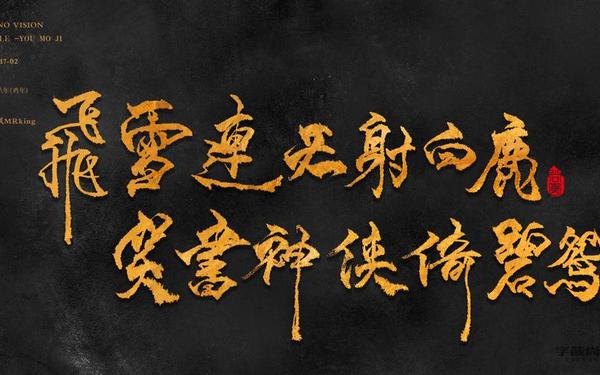 NO VISION
LE -YOU MO JI
17-02
MRking
飛雪連天射白鹿
笑書神俠倚碧鴛